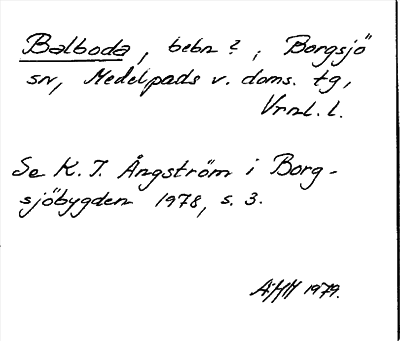 Balboda, bebn?; Borgsjö
sn, Medelpads v. doms. tg,
Vrnl. l.
Se K. J. Ångström i Borg-
sjöbygden 1978, s. 3.
ÄHH 1979.